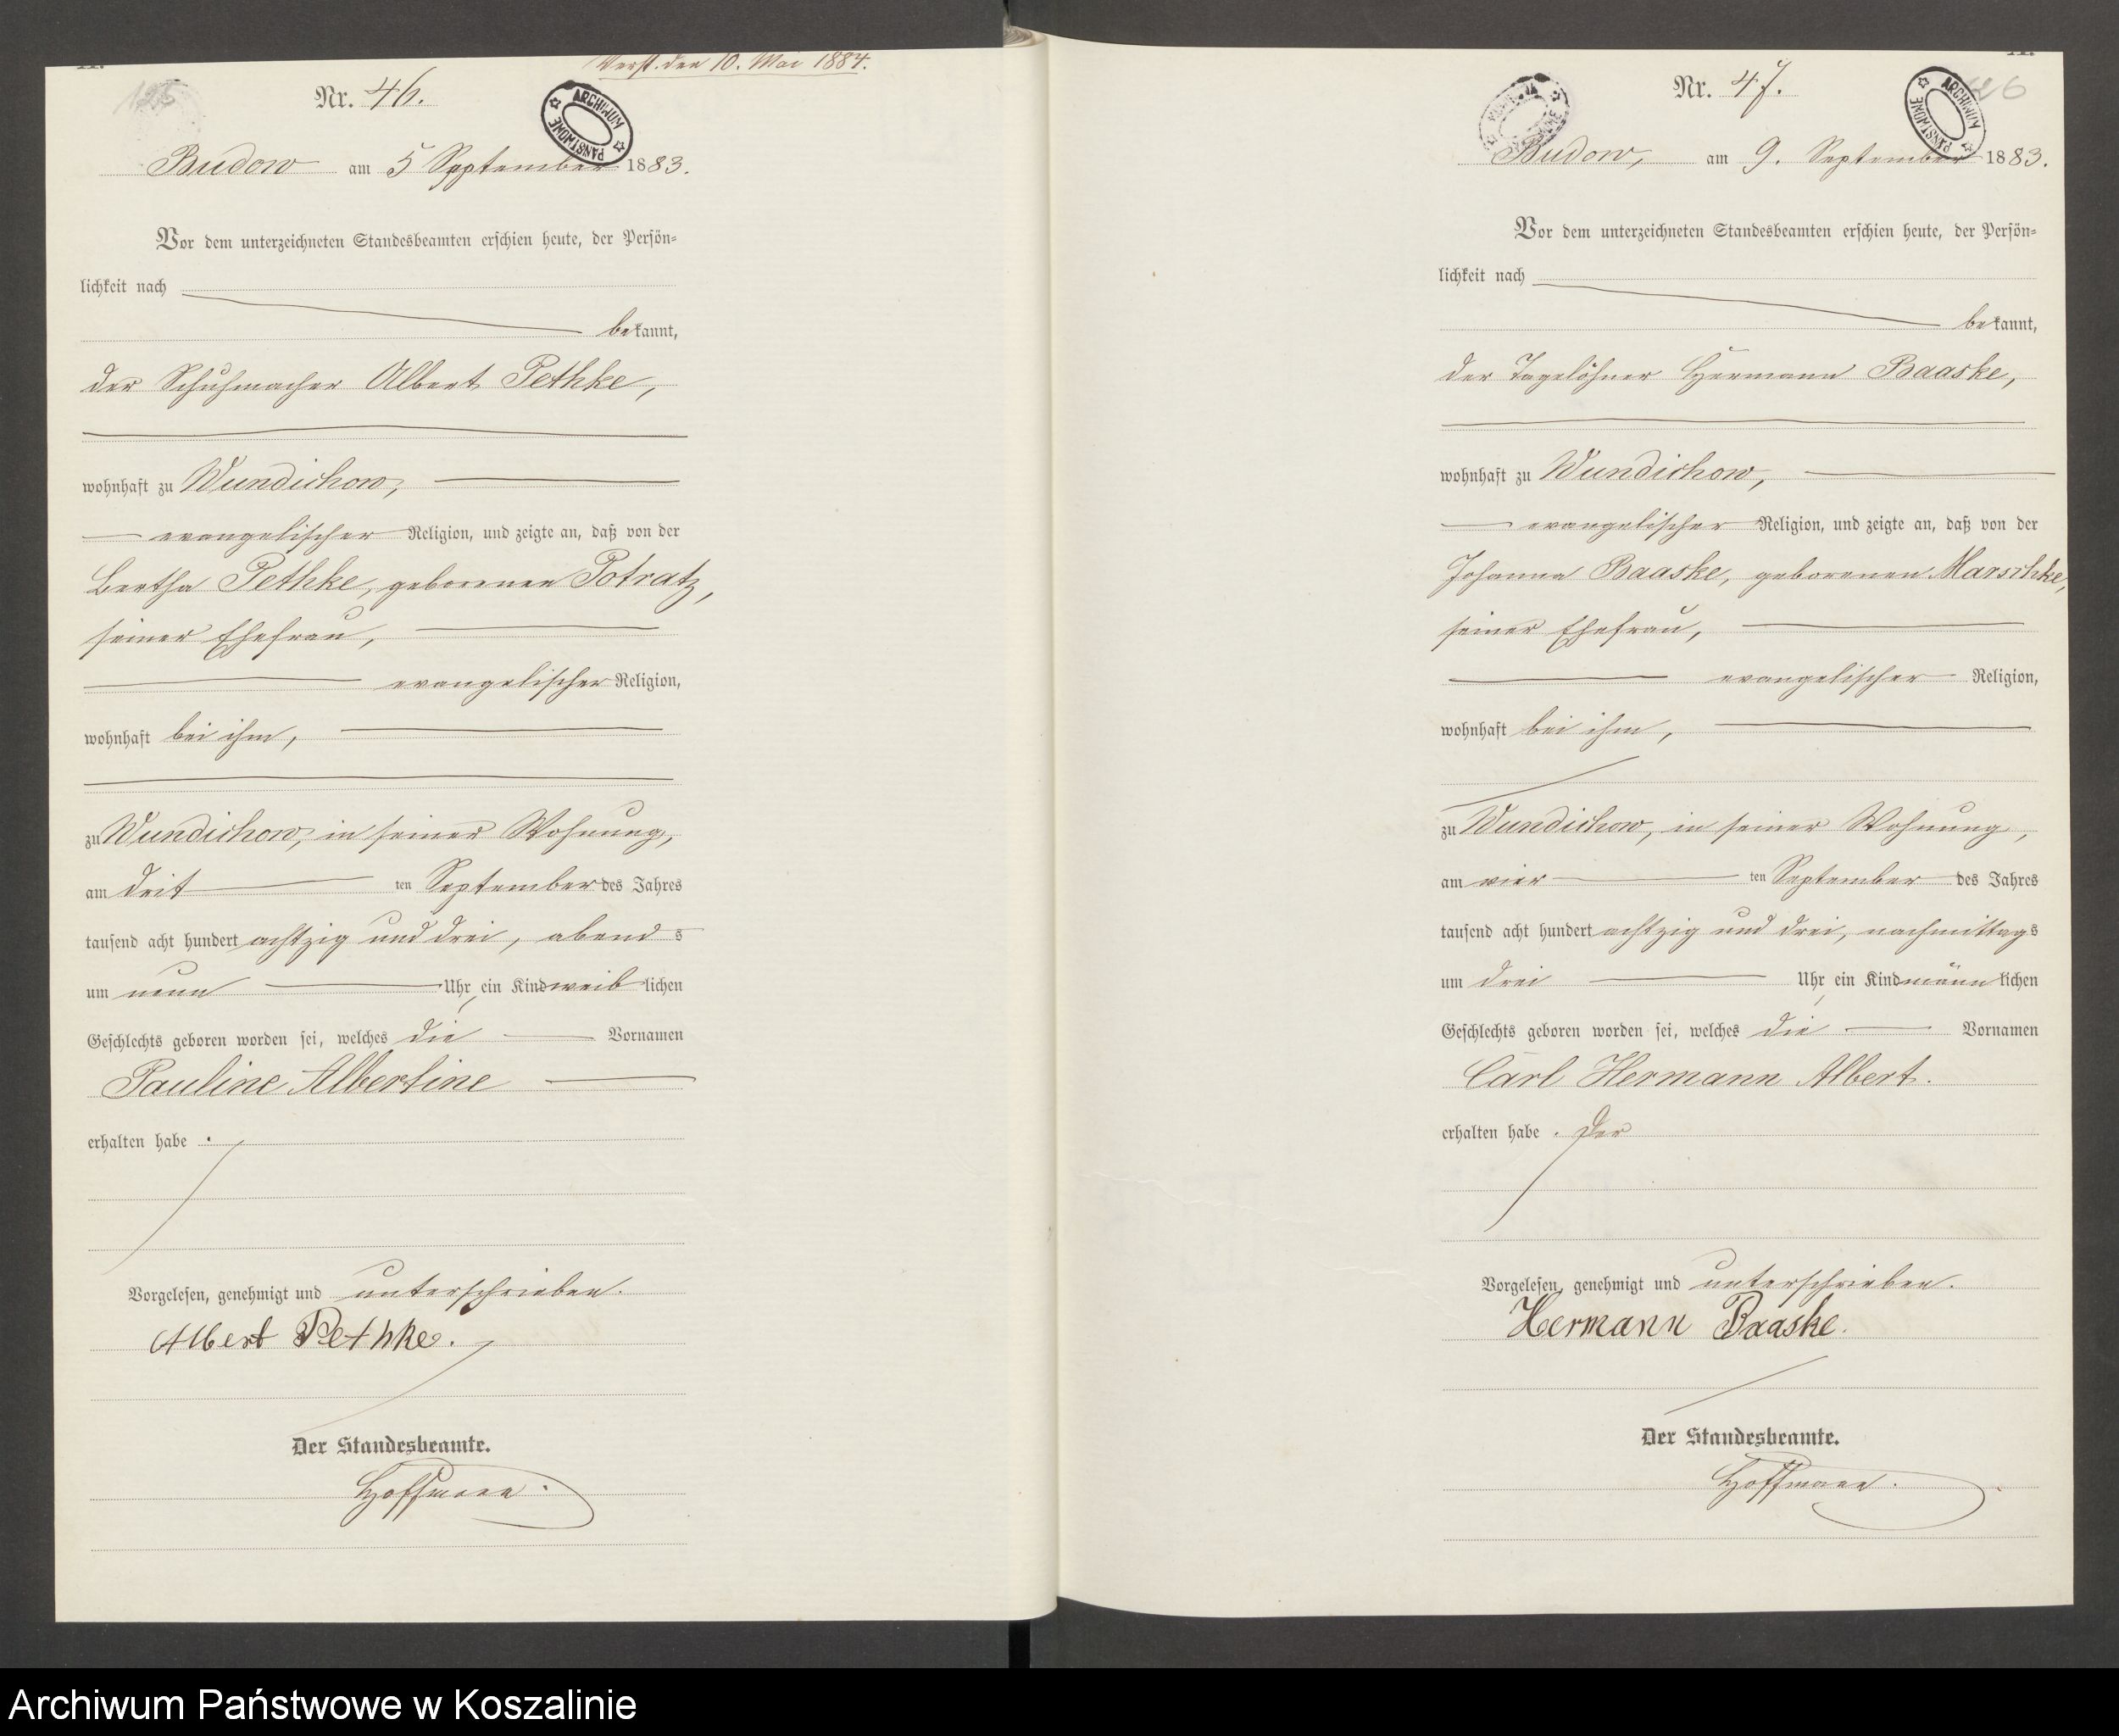 Verst. den 10. Mai 1884.
Nr. 46.
ARCHIWUM PAŃSTWOWE
Budow am 5 September 1883.
Vor dem unterzeichneten Standesbeamten erschien heute, der Persön-
lichkeit nach
bekannt,
der Schuhmacher Albert Pethke,
wohnhaft zu Wundichow,
evangelischer Religion, und zeigte an, daß von der
Bertha Pethke, geborenen Potratz,
seiner Ehefrau,
evangelischer Religion,
wohnhaft bei ihm,
zu Wundichow, in seiner Wohnung,
am drit ten September des Jahres
tausend acht hundert achtzig und drei, abends
um neun Uhr, ein Kind weiblichen
Geschlechts geboren worden sei, welches die Vornamen
Pauline Albertine
erhalten habe.
Vorgelesen, genehmigt und unterschrieben.
Albert Pethke.
Der Standesbeamte.
Hoffmann.
Nr. 47.
ARCHIWUM PAŃSTWOWE
Budow, am 9. September 1883.
Vor dem unterzeichneten Standesbeamten erschien heute, der Persön-
lichkeit nach
bekannt,
der Tagelöhner Hermann Baaske,
wohnhaft zu Wundichow,
evangelischer Religion, und zeigte an, daß von der
Johanna Baaske, geborenen Marschke,
seiner Ehefrau,
evangelischer Religion,
wohnhaft bei ihm,
zu Wundichow, in seiner Wohnung,
am vier ten September des Jahres
tausend acht hundert achtzig und drei, nachmittags
um drei Uhr, ein Kind männlichen
Geschlechts geboren worden sei, welches die Vornamen
Carl Hermann Albert.
erhalten habe. Der
Vorgelesen, genehmigt und unterschrieben.
Hermann Baaske.
Der Standesbeamte.
Hoffmann.
Archiwum Państwowe w Koszalinie